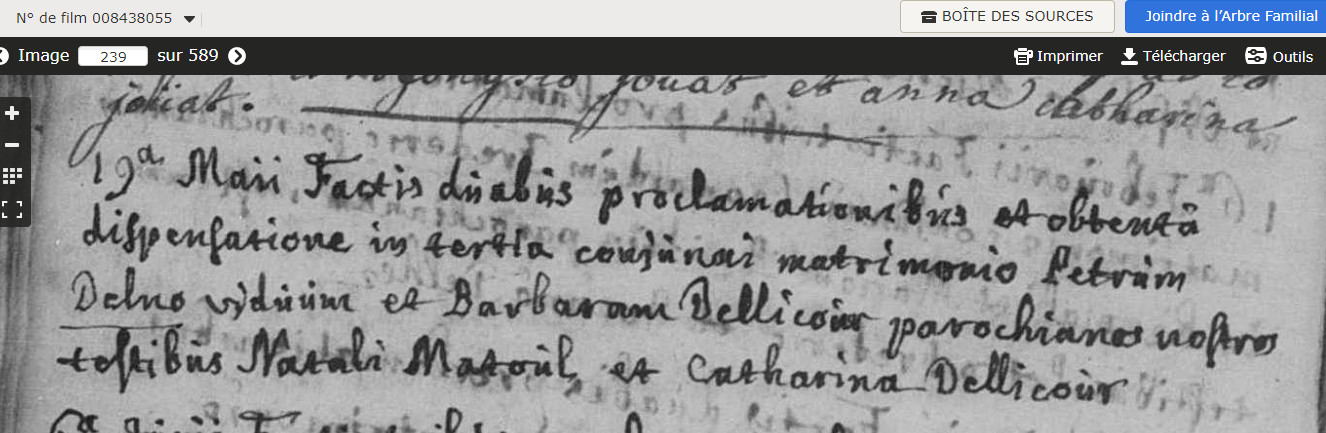 N° de film 008438055
BOÎTE DES SOURCES
Joindre à l'Arbre Familial
Image 239 sur 589
Imprimer
Télécharger
Outils
jouat et anna Catharina
joüat.
19a Maii Factis düabüs proclamationibüs et obtentâ
dispensatione in tertia conjünxi matrimonio Petrüm
Delno vidüüm et Barbaram Dellicoür parochianos nostros
testibüs Natali Matoül et Catharina Dellicoür